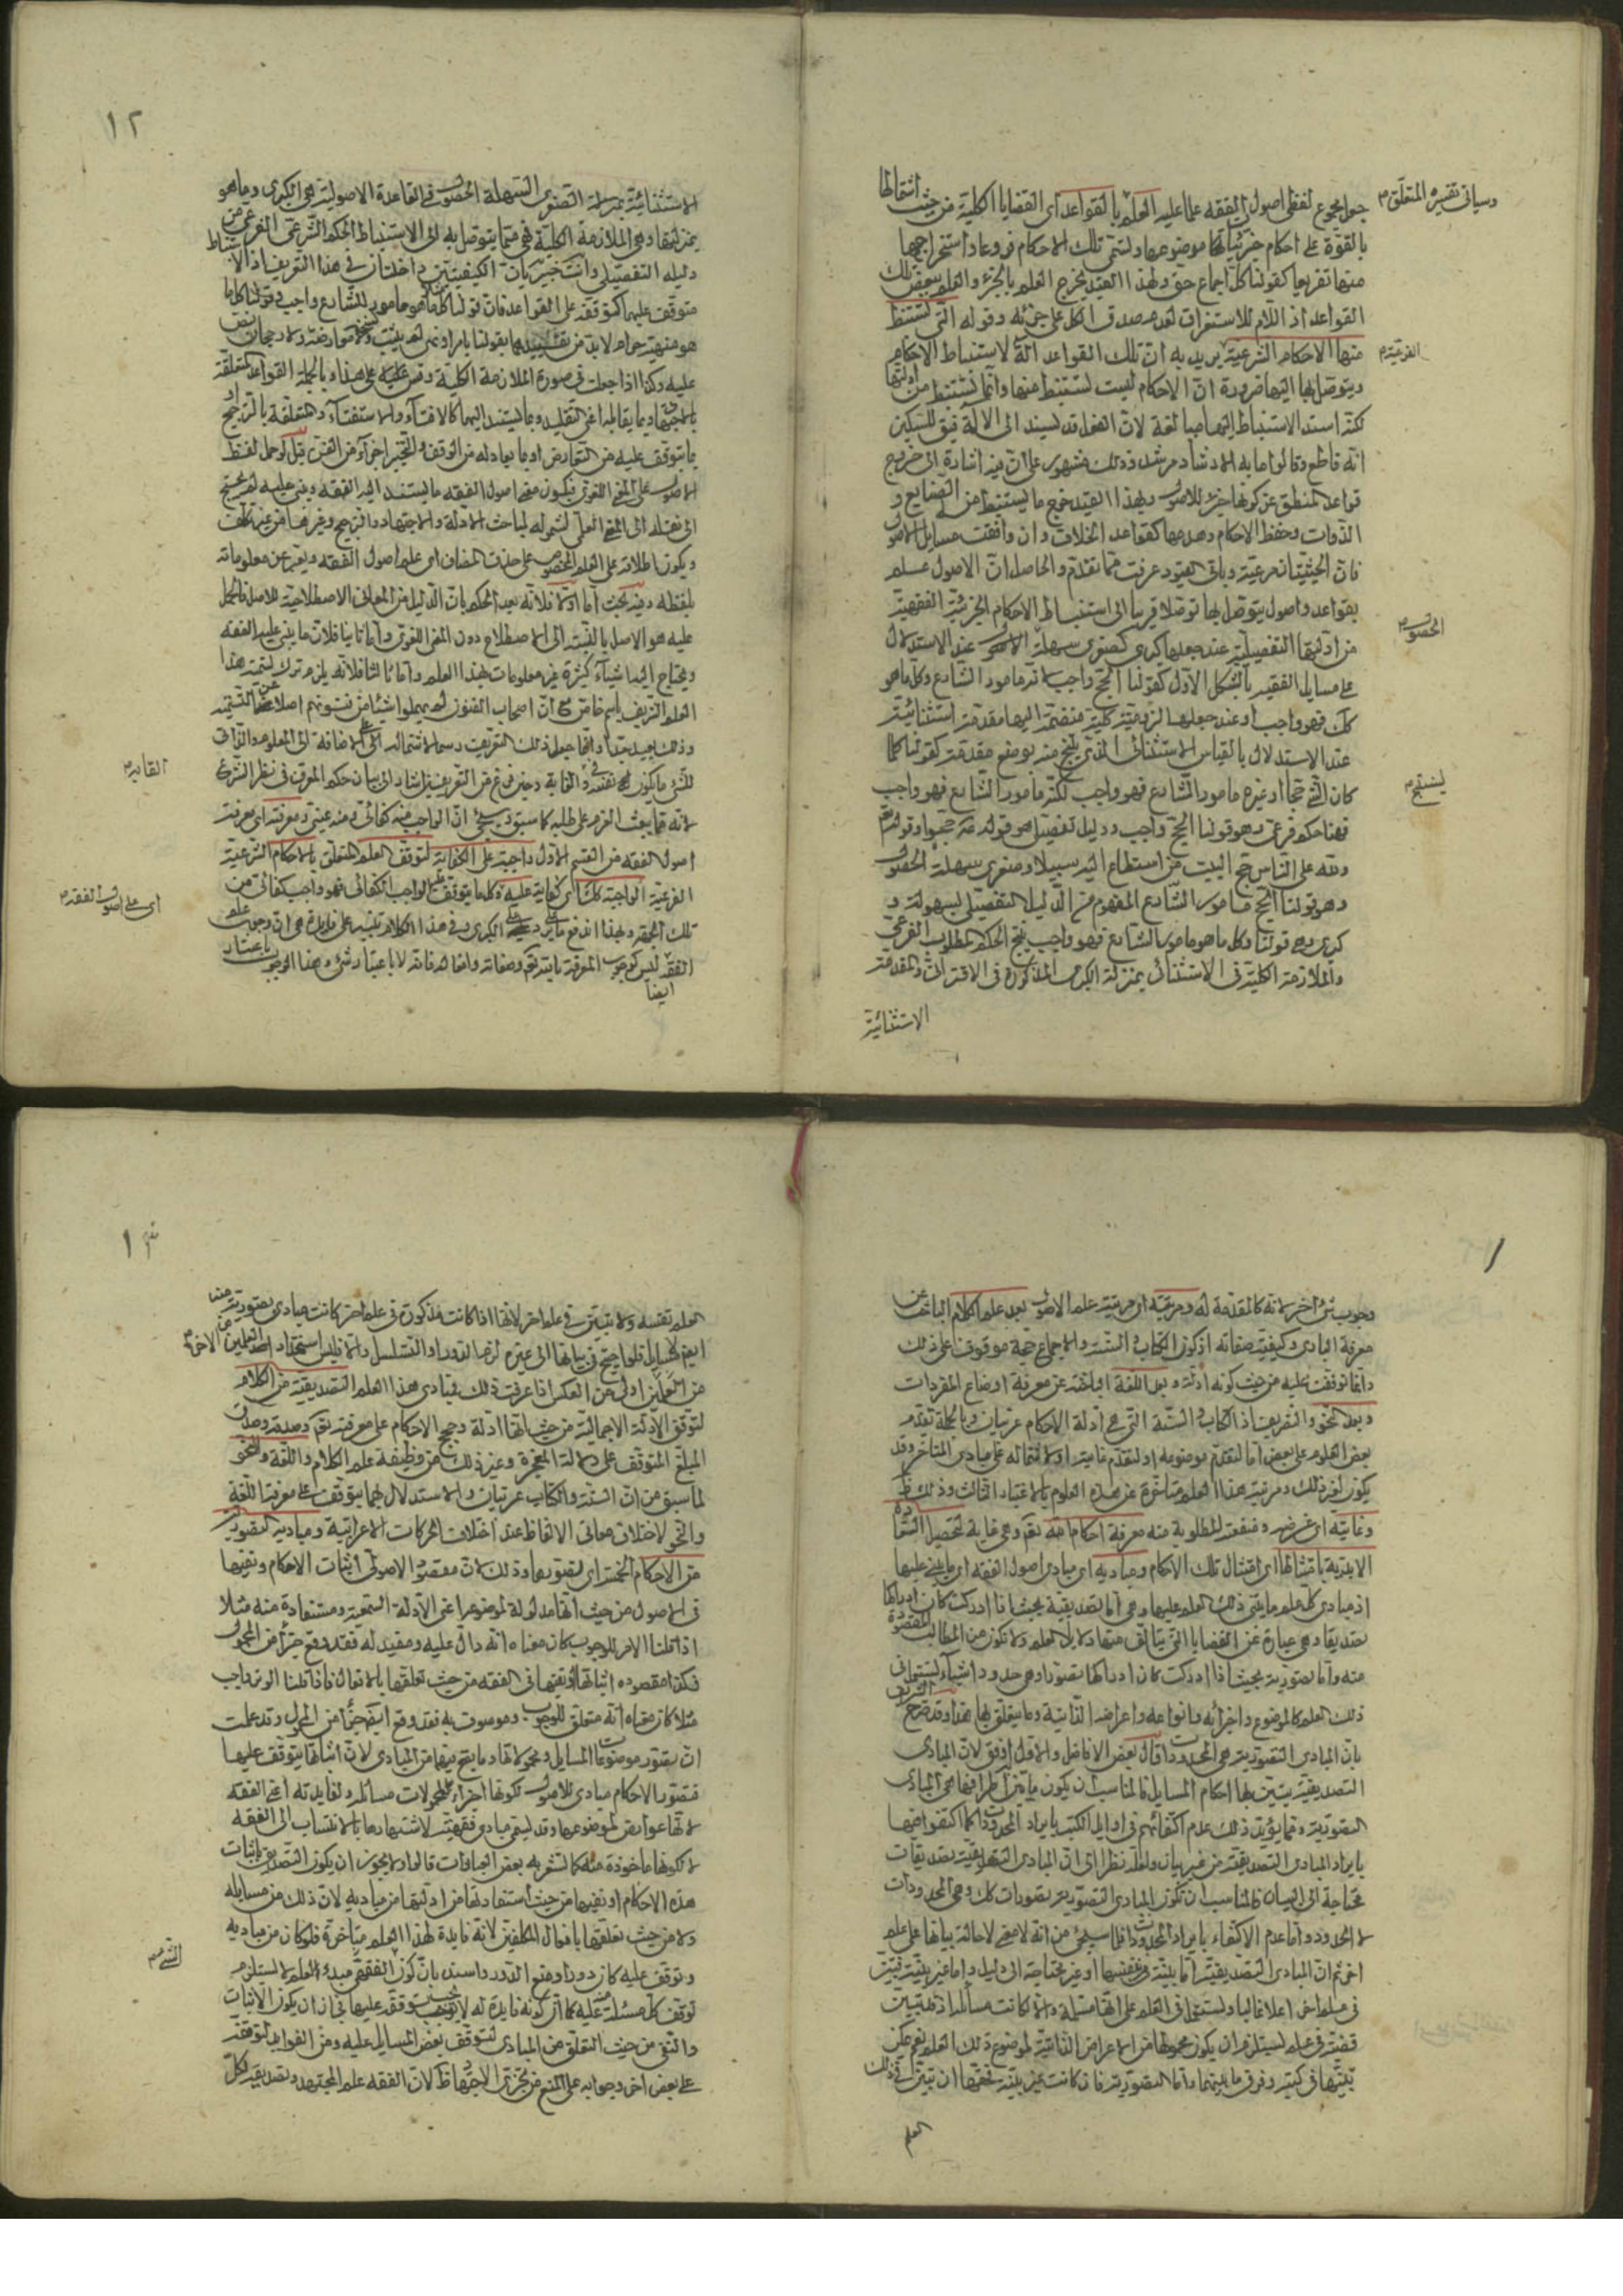 وسياتي تفسيره المتعلق م
جعل مجموع لفظي اصول الفقه علما عليه العلم بالقواعد اى القضايا الكلية من حيث اشتمالها
بالقوة على احكام جزئيات موضوعها وتسمى تلك الاحكام فروعا واستخراجها
منها تفريعا كقولنا كل اجماع حق ولهذا القيد يخرج العلم بالجزء والعلم ببعض تلك
القواعد اذ اللام للاستغراق لعدم صدق الكل على جزئه وقوله التى تستنبط
منها الاحكام الشرعية يريد به ان تلك القواعد الة لاستنباط الاحكام
الفرعية م
ويتوصل بها اليها ضرورة ان الاحكام ليست تستنبط منها وانما تستنبط من ادلتها
لكنه اسند الاستنباط اليها مبالغة لان الفعل قد يسند الى الالة فيق للسكين
انه قاطع وقالوا ما به الارشاد مرشد وذلك مشهور على ان فيه اشارة الى خروج
قواعد المنطق عن كونها جزء للاصول وبهذا القيد خرج ما يستنبط منه الصنايع و
الذوات وحفظ الاحكام وهدمها كقواعد الخلاف وان وافقت مسايل الاصول
فان الحيثيتان مرعية وباقى القيود عرفت مما تقدم والحاصل ان الاصول علم
بقواعد واصول يتوصل بها توصلا قريبا الى استنباط الاحكام الجزئية الفقهية
من ادلتها التفصيلية عند جعلها كبرى لصغرى سهلة عند الاستدلال
الحصول م
على مسايل الفقه بالشكل الاول كقولنا الحج واجب لانه مامور الشارع وكل ما هو
كك فهو واجب او عند جعلها لزومية كلية منضمة اليها مقدمة استثنائية
عند الاستدلال بالقياس الاستثنائى الذى ينتج منه بوضع مقدمة كقولنا كلما
كان الشئ حجا او غيره مامور الشارع فهو واجب لكنه مامور الشارع فهو واجب
فهنا حكم فرعى وهو قولنا الحج واجب ودليل تفصيلى هو قوله حجوا وقوله تعم
ولله على الناس حج البيت من استطاع اليه سبيلا وصغرى سهلة الحصول
وهو قولنا الحج مامور الشارع المفهوم من الدليل التفصيلى بسهولة و
كبرى وهو قولنا وكل ما هو مامور الشارع فهو واجب ينتج الحكم المطلوب الفرعى
والملازمة الكلية فى الاستثنائى بمنزلة الكبرى المذكورة فى الاقترانى والمقدمة
الاستثنائية
١٢
الاستثنائية بمنزلة الصغرى السهلة الحصول فالقاعدة الاصولية هى الكبرى وما هو
بمنزلتها وهى الملازمة الكلية فهى مما يتوصل به الى الاستنباط الحكم الشرعى الفرعى من
دليله التفصيلى وانت خبير بان الكيفيتين داخلتان فى هذا التعريف اذ الاستنباط
متوقف عليهما كتوقفه على القواعد فان قولنا كل ما هو مامور الشارع واجب وقولنا كل ما
هو منهيه حرام لابد من تقييدهما بقولنا بامر او نهى
عليه وكذا اذا جعلت فى صورة الملازمة الكلية وقس عليه على هذا وبالجملة القواعد المتعلقة
بالاجتهاد وما يقابله اعنى التقليد وما يستند اليهما كالافتاء والاستفتاء والمتعلقة بالترجيح و
ما يتوقف عليه من التعارض او ما يعادله من التوقف والتخيير اجزاء من الفن قيل لو حمل لفظ
الاصول على المعنى اللغوى فيكون معنى اصول الفقه ما يستند اليه الفقه ويبنى عليه لم يحتج
الى نقله الى المعنى العلمى لشموله لمباحث الادلة والاجتهاد والترجيح وغيرها من غير تكلف
ويكون اطلاقه على العلم المخصوص على حذف المضاف اى علم اصول الفقه ويعبر عن معلوماته
بلفظه وفيه بحث اما اولا فلانه بعد الحكم بان الدليل من المعانى الاصطلاحية للاصل فالحمل
عليه هو الاصل بالنسبة الى الاصطلاح دون المعنى اللغوى واما ثانيا فلان ما يبنى عليه الفقه
ويحتاج اليه اشياء كثيرة غير معلومات هذا العلم واما ثالثا فلانه يلزم ترك تسمية هذا
العلم الشريف باسم خاص مع ان اصحاب الفنون لم يهملوا شيئا من فنونهم اصلا عن التسمية
وذلك بعيد جدا وانما جعل ذلك التعريف رسما لاشتماله على الاضافة الى المعلوم والذاتى
القايدم
للشئ ما يكون له فى نفسه والغاية وحين فرغ من التعريفين اشار الى بيان حكم المعرف فى نظر الشرع
لانه مما يبعث العزم على طلبه كما سبق وسيجئ ان الواجب منه كفائى ومنه عينى ومعرفته اى معرفة
اصول الفقه من القسم الاول واجبة على الكفاية لتوقف العلم المتعلق بالاحكام الشرعية
الفرعية الواجبة كك اى كفاية عليه وكل ما يتوقف عليه الواجب الكفائى فهو واجب كفائى من
اى على اصول الفقه م
تلك الجهة وبهذا اندفع ما يرد على الكبرى وفى هذا الكلام تنبيه على فايدة هى ان وجوب علم
الفقه ليس كوجوب المعرفة بالله تعم وصفاته وافعاله فانه لا باعتبار شئ وهذا الوجوب باعتبار
ايضا
١
وجوب شئ اخر لانه كالمقدمة له ومرتبته اى مرتبة علم الاصول بعد علم الكلام الباحث عن
معرفة البارى وكيفية صفاته اذ كون الكتاب والسنة والاجماع حجة موقوف على ذلك
وانما توقفت عليه من حيث كونه ادلة وبعد اللغة الباحثة عن معرفة اوضاع المفردات
وبعد النحو والتصريف اذ الكتاب والسنة التى هى ادلة الاحكام عربيان وبالجملة تقدم
بعض العلوم على بعض اما لتقدم موضوعه او لتقدم غايته او لاشتماله على مبادى المتاخر وقد
يكون لغير ذلك ومرتبة هذا العلم متاخرة عن هذه العلوم بالاعتبار الثالث وذلك ظ
وغايته اى غرضه ومنفعته المطلوبة منه معرفة احكام الله تعم وهى غاية لتحصيل السعادة
الابدية بامتثالها اى امتثال تلك الاحكام ومباديه اى مبادى اصول الفقه اى ما يبنى عليها
اذ مبادى كل علم ما يبتنى ذلك العلم عليها وهى اما تصديقية بحيث اذا ادركت كان ادراكها
تصديقا وهى عبارة عن القضايا التى يتالف منها دلايل العلم ولا تكون من المطالب المقصودة
منه واما تصورية بحيث اذا ادركت كان ادراكها تصورا وهى حدود اشياء تستعمل فى
ذلك العلم كالموضوع واجزائه وانواعه واعراضه الذاتية وما يتعلق بها هذا وقد صرح الشريف
بان المبادى التصورية هى المحدودات قال بعض الافاضل والاول اوفق لان المبادى
التصديقية يتبين بها احكام المسايل فالمناسب ان يكون ما يتبين اطرافها هى المبادى
التصورية ومما يؤيد ذلك عدم اكتفائهم فى اوايل الكتب بايراد المحدودات كما اكتفوا فيها
بايراد المبادى التصديقية من غير بيان ولعله نظر الى ان المبادى التصديقية تصديقات
محتاجة الى البيان فالمناسب ان تكون المبادى التصورية تصورات كك وهى المحدودات
لا الحدود واما عدم الاكتفاء بايراد المحدودات فلما سيجئ من انه لا معنى لاحالة بيانها على علم
اخر ثم ان المبادى التصديقية اما بينة فى نفسها او غير محتاجة الى دليل واما غير بينة تبين
فى علم اخر اعلا غالبا وتستعمل فى العلم على انها مسلمة والا لكانت مسائله اذ تبيين
قضية فى علم يستلزم ان يكون محمولها من الاعراض الذاتية لموضوع ذلك العلم نعم يمكن
تبيينها فى كبير وفرق ما بينهما واما التصورية فان كانت غير بينة فحقها ان تبين فى ذلك
العلم
١٣
العلم نفسه ولا تبين فى علم اخر لانها اذا كانت مذكورة فى علم اخر كانت مبادى تصورية منه
ايضا فلو احتيج فى بيانها الى غيره لزم الدور او التسلسل والا فليس استمداد احد العلمين من الاخر م
من العلمين اولى من العكس اذا عرفت ذلك فمبادى هذا العلم التصديقية من الكلام
لتوقف الادلة الاجمالية من حيث انها ادلة وحجج الاحكام على معرفته تعم وصدق
المبلغ المتوقف على دلالة المعجزة وغير ذلك من وظيفة علم الكلام واللغة والنحو
لما سبق من ان السنة والكتاب عربيان والاستدلال بهما يتوقف على معرفة اللغة
والنحو لاختلاف معانى الالفاظ عند اختلاف الحركات الاعرابية ومباديه التصورية
من الاحكام الخمسة اى تصورها وذلك لان مقصود الاصولى اثبات الاحكام ونفيها
فى الاصول من حيث انها مدلولة لموضوع اعنى الادلة السمعية ومستفادة منه مثلا
اذا قلنا الامر للوجوب كان معناه انه دال عليه ومفيد له فقد وقع جزءا من المحمول
فكذا مقصوده اثباتها او نفيها فى الفقه من حيث تعلقها بالافعال فاذا قلنا الوتر واجب
مثلا كان معناه انه متعلق للوجوب وموصوف به فقد وقع ايضا جزءا من المحمول وقد علمت
ان تصور موضوعات المسايل ومحمولاتها وما يقع فيها من المبادى لان اثباتها يتوقف عليها
فتصور الاحكام مبادى للاصول لكونها اجزاء لمحمولات مسائله ولفايدته اعنى الفقه
لانها عوارض لموضوعها وقد ليتقى مبادى فقهية لاشتهارها بالانتساب الى الفقه
لا لكونها ماخوذة منه كما تشعر به بعض العبارات قالوا ولا يجوز ان يكون التصديق باثبات
هذه الاحكام او نفيها من حيث استفادتها من ادلتها من مباديه لان ذلك من مسايله
ولا من حيث تعلقها بافعال المكلفين لانه فايدة لهذا العلم متاخرة فلو كان من مباديه
وتوقف عليه كان دورا ومنع الدور واسند بان كون الفقه مبدء للعلم لا يستلزم
الشئ م
توقف كل مسئلة عليه كما ان كونه فايدة له لا يوجب توقفه عليها فجاز ان يكون الاثبات
والنفى من حيث التعلق من المبادى لتوقف بعض المسايل عليه ومن الفوايد لتوقفه
على بعض اخر وجوابه على المنع من تجزى الاجتهاد ظ لان الفقه علم المجتهد وتصديقه لكل